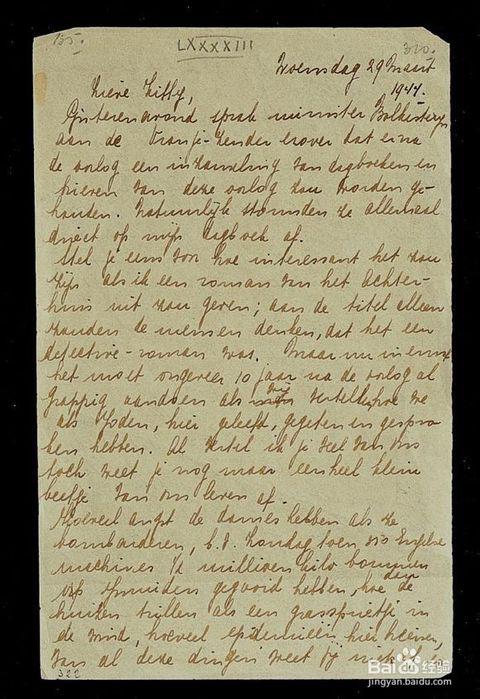 155.
LXXXXIII
320.
Woensdag 29 Maart
1944.
Lieve Kitty,
Gisterenavond sprak minister Bolkesteyn
aan de Oranje-zender erover dat er na
de oorlog een inzameling van dagboeken en
brieven van deze oorlog zou worden ge-
houden. Natuurlijk stormden ze allemaal
direct op mijn dagboek af.
Stel je eens voor hoe interessant het zou
zijn als ik een roman van het Achter-
huis uit zou geven; aan de titel alleen
zouden de mensen denken, dat het een
detective-roman was. Maar nu in ernst
het moet ongeveer 10 jaar na de oorlog al
grappig aandoen als wij vertellen hoe we
als Joden, hier geleefd, gegeten en gespro-
ken hebben. Al vertel ik je veel van ons
toch weet je nog maar een heel klein
beetje van ons leven af.
Hoeveel angst de dames hebben als ze
bombarderen, b.v. Zondag toen 350 Engelse
machines ½ millioen kilo bommen
op Ymuiden gegooid hebben, hoe dan de
huizen trillen als een grassprietje in
de wind, hoeveel epidemieën hier heersen,
van al deze dingen weet jij niets
322
Bai 经验
jingyan.baidu.com